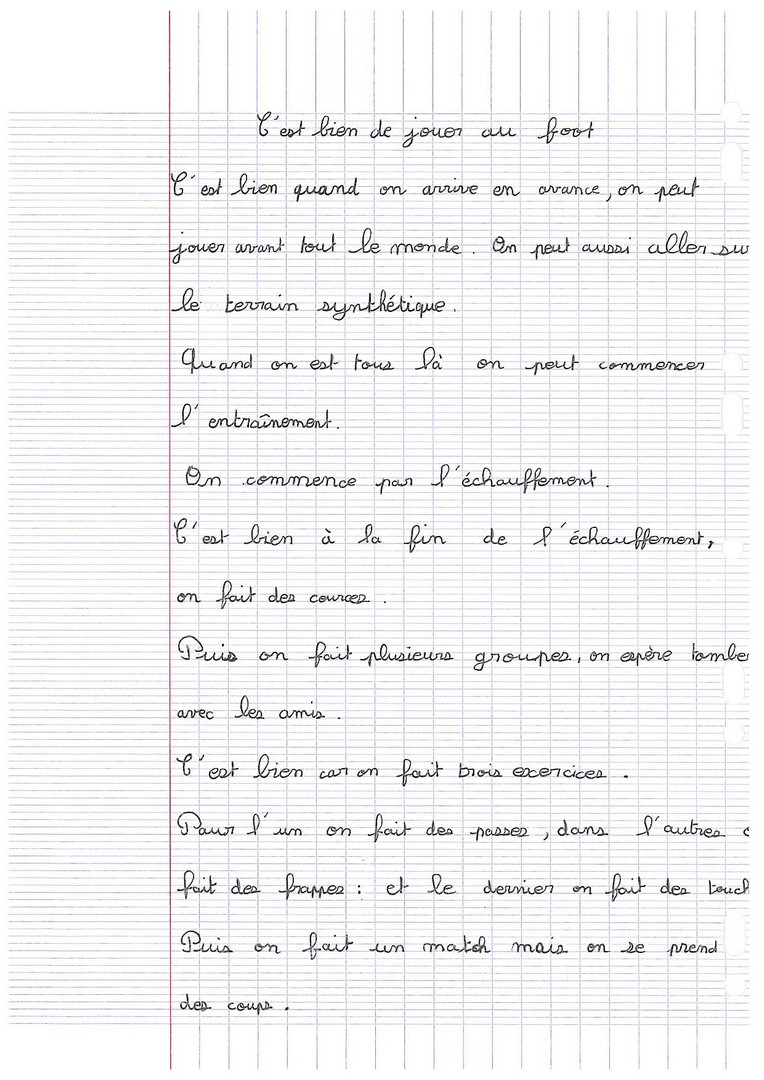 C'est bien de jouer au foot
C'est bien quand on arrive en avance, on peut
jouer avant tout le monde. On peut aussi aller su
le terrain synthétique.
Quand on est tous là on peut commencer
l'entraînement.
On commence par l'échauffement.
C'est bien à la fin de l'échauffement,
on fait des cources.
Puis on fait plusieurs groupes, on espère tombe
avec les amis.
C'est bien car on fait trois exercices.
Pour l'un on fait des passes, dans l'autres
fait des frappes : et le dernier on fait des touch
Puis on fait un match mais on se prend
des coups.